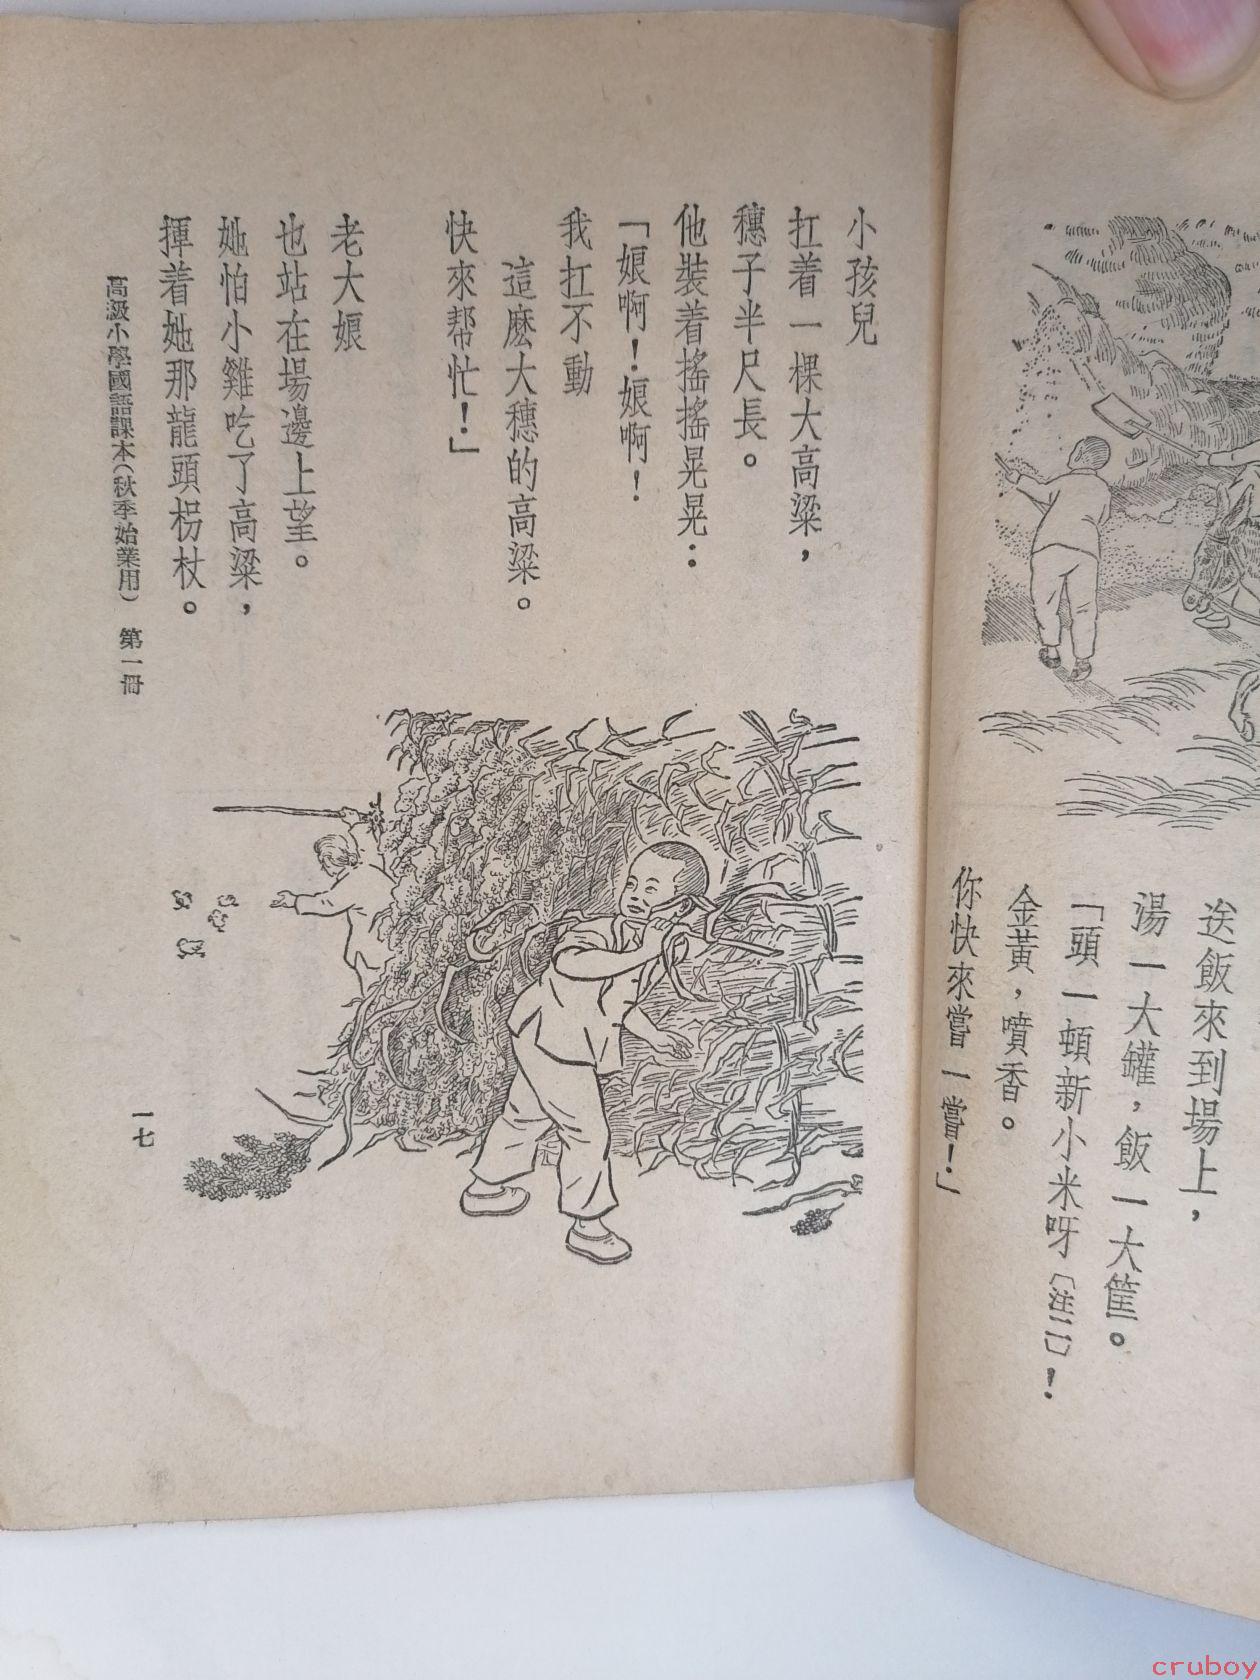 送飯來到場上，
湯一大罐，飯一大筐。
「頭一頓新小米呀〔注二〕！
金黃，噴香。
你快來嘗一嘗！」
小孩兒
扛着一棵大高粱，
穗子半尺長。
他裝着搖搖晃晃：
「娘啊！娘啊！
我扛不動
這麽大穗的高粱。
快來帮忙！」
老大娘
也站在場邊上望。
她怕小雞吃了高粱，
揮着她那龍頭柺杖。
高級小學國語課本（秋季始業用）　第一冊
一七
cruboy